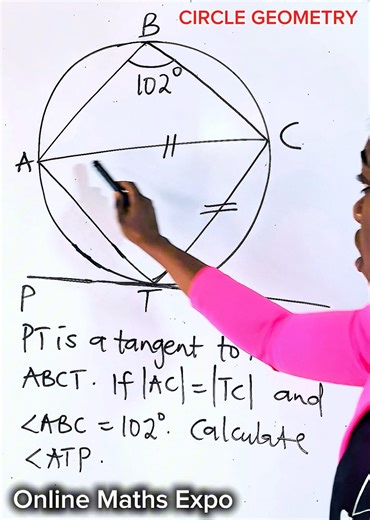 CIRCLE GEOMETRY
B
102°
A
C
P
T
PT is a tangent to
ABCT. If |AC|=|TC| and
<ABC = 102°. Calculate
<ATP.
Online Maths Expo